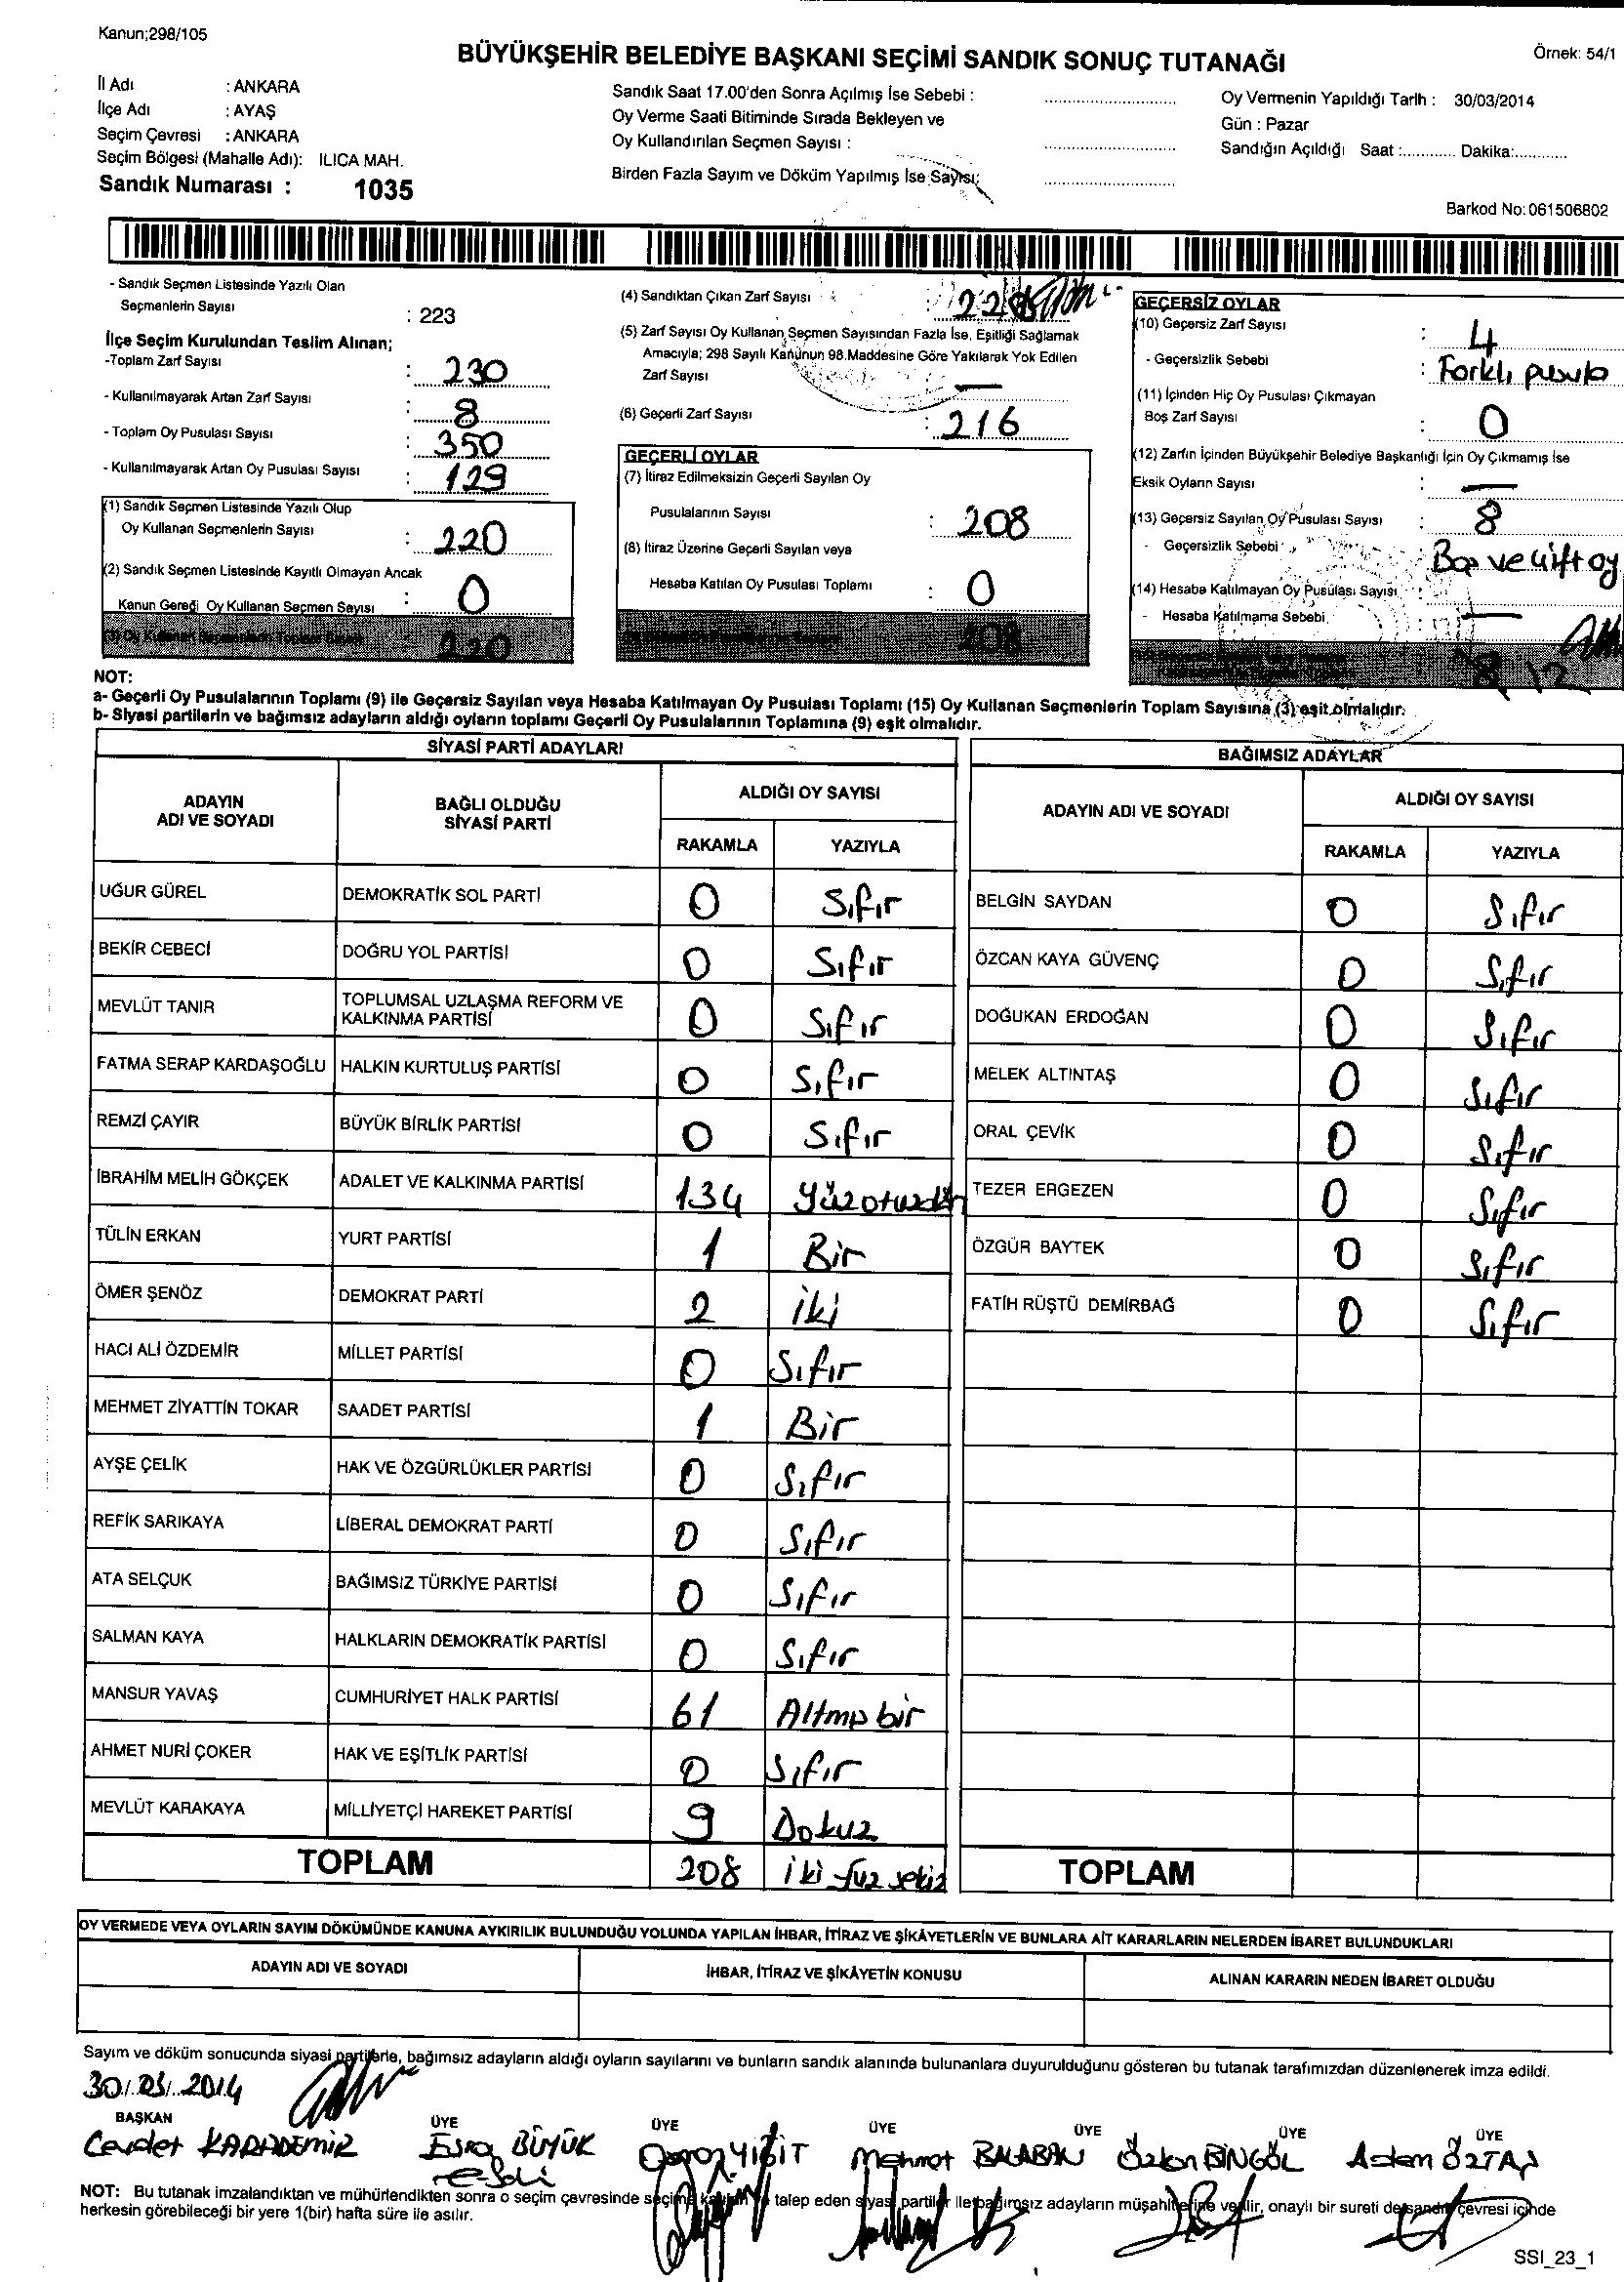 Kanun;298/105
BÜYÜKŞEHİR BELEDİYE BAŞKANI SEÇİMİ SANDIK SONUÇ TUTANAĞI
Örnek: 54/1
İl Adı : ANKARA
İlçe Adı : AYAŞ
Seçim Çevresi : ANKARA
Seçim Bölgesi (Mahalle Adı): ILICA MAH.
Sandık Numarası : 1035
Sandık Saat 17.00'den Sonra Açılmış İse Sebebi :
Oy Verme Saati Bitiminde Sırada Bekleyen ve
Oy Kullandırılan Seçmen Sayısı :
Birden Fazla Sayım ve Döküm Yapılmış İse Sayısı:
Oy Vermenin Yapıldığı Tarih : 30/03/2014
Gün : Pazar
Sandığın Açıldığı Saat :............ Dakika:............
Barkod No: 061506802
- Sandık Seçmen Listesinde Yazılı Olan
Seçmenlerin Sayısı : 223
İlçe Seçim Kurulundan Teslim Alınan;
-Toplam Zarf Sayısı : 230
- Kullanılmayarak Artan Zarf Sayısı : 8
- Toplam Oy Pusulası Sayısı : 350
- Kullanılmayarak Artan Oy Pusulası Sayısı : 129
(1) Sandık Seçmen Listesinde Yazılı Olup
Oy Kullanan Seçmenlerin Sayısı : 220
(2) Sandık Seçmen Listesinde Kayıtlı Olmayan Ancak
Kanun Gereği Oy Kullanan Seçmen Sayısı : 0
(3) Oy Kullanan Seçmenlerin Toplam Sayısı 220
(4) Sandıktan Çıkan Zarf Sayısı
(5) Zarf Sayısı Oy Kullanan Seçmen Sayısından Fazla İse, Eşitliği Sağlamak
Amacıyla; 298 Sayılı Kanunun 98.Maddesine Göre Yakılarak Yok Edilen
Zarf Sayısı : —
(6) Geçerli Zarf Sayısı : 216
GEÇERLİ OYLAR
(7) İtiraz Edilmeksizin Geçerli Sayılan Oy
Pusulalarının Sayısı : 208
(8) İtiraz Üzerine Geçerli Sayılan veya
Hesaba Katılan Oy Pusulası Toplamı : 0
208
GEÇERSİZ OYLAR
(10) Geçersiz Zarf Sayısı : 4
- Geçersizlik Sebebi : Farklı pusula
(11) İçinden Hiç Oy Pusulası Çıkmayan
Boş Zarf Sayısı : 0
(12) Zarfın İçinden Büyükşehir Belediye Başkanlığı İçin Oy Çıkmamış İse
Eksik Oyların Sayısı : —
(13) Geçersiz Sayılan Oy Pusulası Sayısı : 8
- Geçersizlik Sebebi : Boş ve çift oy
(14) Hesaba Katılmayan Oy Pusulası Sayısı : —
- Hesaba Katılmama Sebebi
8 12
NOT:
a- Geçerli Oy Pusulalarının Toplamı (9) ile Geçersiz Sayılan veya Hesaba Katılmayan Oy Pusulası Toplamı (15) Oy Kullanan Seçmenlerin Toplam Sayısına (3) eşit olmalıdır.
b- Siyasi partilerin ve bağımsız adayların aldığı oyların toplamı Geçerli Oy Pusulalarının Toplamına (9) eşit olmalıdır.
SİYASİ PARTİ ADAYLARI
ADAYIN ADI VE SOYADI BAĞLI OLDUĞU SİYASİ PARTİ ALDIĞI OY SAYISI
RAKAMLA YAZIYLA
UĞUR GÜREL DEMOKRATİK SOL PARTİ 0 Sıfır
BEKİR CEBECİ DOĞRU YOL PARTİSİ 0 Sıfır
MEVLÜT TANIR TOPLUMSAL UZLAŞMA REFORM VE KALKINMA PARTİSİ 0 Sıfır
FATMA SERAP KARDAŞOĞLU HALKIN KURTULUŞ PARTİSİ 0 Sıfır
REMZİ ÇAYIR BÜYÜK BİRLİK PARTİSİ 0 Sıfır
İBRAHİM MELİH GÖKÇEK ADALET VE KALKINMA PARTİSİ 134 Yüzotuzdört
TÜLİN ERKAN YURT PARTİSİ 1 Bir
ÖMER ŞENÖZ DEMOKRAT PARTİ 2 iki
HACI ALİ ÖZDEMİR MİLLET PARTİSİ 0 Sıfır
MEHMET ZİYATTİN TOKAR SAADET PARTİSİ 1 Bir
AYŞE ÇELİK HAK VE ÖZGÜRLÜKLER PARTİSİ 0 Sıfır
REFİK SARIKAYA LİBERAL DEMOKRAT PARTİ 0 Sıfır
ATA SELÇUK BAĞIMSIZ TÜRKİYE PARTİSİ 0 Sıfır
SALMAN KAYA HALKLARIN DEMOKRATİK PARTİSİ 0 Sıfır
MANSUR YAVAŞ CUMHURİYET HALK PARTİSİ 61 Altmış bir
AHMET NURİ ÇOKER HAK VE EŞİTLİK PARTİSİ 0 Sıfır
MEVLÜT KARAKAYA MİLLİYETÇİ HAREKET PARTİSİ 9 Dokuz
TOPLAM 208 iki yüz sekiz
BAĞIMSIZ ADAYLAR
ADAYIN ADI VE SOYADI ALDIĞI OY SAYISI
RAKAMLA YAZIYLA
BELGİN SAYDAN 0 Sıfır
ÖZCAN KAYA GÜVENÇ 0 Sıfır
DOĞUKAN ERDOĞAN 0 Sıfır
MELEK ALTINTAŞ 0 Sıfır
ORAL ÇEVİK 0 Sıfır
TEZER ERGEZEN 0 Sıfır
ÖZGÜR BAYTEK 0 Sıfır
FATİH RÜŞTÜ DEMİRBAĞ 0 Sıfır
TOPLAM
OY VERMEDE VEYA OYLARIN SAYIM DÖKÜMÜNDE KANUNA AYKIRILIK BULUNDUĞU YOLUNDA YAPILAN İHBAR, İTİRAZ VE ŞİKÂYETLERİN VE BUNLARA AİT KARARLARIN NELERDEN İBARET BULUNDUKLARI
ADAYIN ADI VE SOYADI İHBAR, İTİRAZ VE ŞİKÂYETİN KONUSU ALINAN KARARIN NEDEN İBARET OLDUĞU
Sayım ve döküm sonucunda siyasi partilerle, bağımsız adayların aldığı oyların sayılarını ve bunların sandık alanında bulunanlara duyurulduğunu gösteren bu tutanak tarafımızdan düzenlenerek imza edildi.
30/03/2014
BAŞKAN ÜYE ÜYE ÜYE ÜYE ÜYE ÜYE
Cevdet KARADEMİR Esra BÜYÜK YİĞİT Mehmet BALABAN Özkan BİNGÖL ÖZTAŞ
NOT: Bu tutanak imzalandıktan ve mühürlendikten sonra o seçim çevresinde seçime katılan ve talep eden siyasi partiler ile bağımsız adayların müşahitlerine verilir, onaylı bir sureti de sandık çevresi içinde
herkesin görebileceği bir yere 1(bir) hafta süre ile asılır.
SSI_23_1